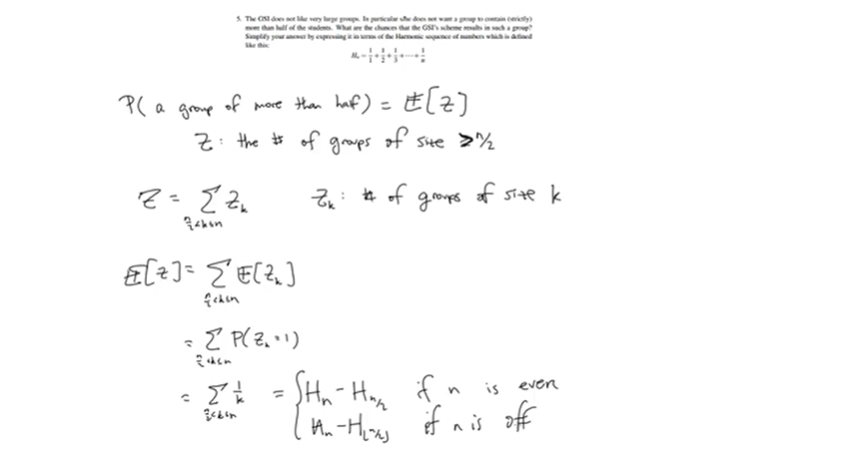 5. The GSI does not like very large groups. In particular s/he does not want a group to contain (strictly)
more than half of the students. What are the chances that the GSI's scheme results in such a group?
Simplify your answer by expressing it in terms of the Harmonic sequence of numbers which is defined
like this:
Hₙ = 1/1 + 1/2 + 1/3 + ⋯ + 1/n
P( a group of more than half) = E[Z]
Z: the # of groups of size > n/2
Z = Σ Zₖ Zₖ: # of groups of size k
n/2<k≤n
E[Z] = Σ E[Zₖ]
n/2<k≤n
= Σ P(Zₖ=1)
n/2<k≤n
= Σ 1/k = { Hₙ - H_{n/2} if n is even
n/2<k≤n
Hₙ - H_{⌊n/2⌋} if n is off